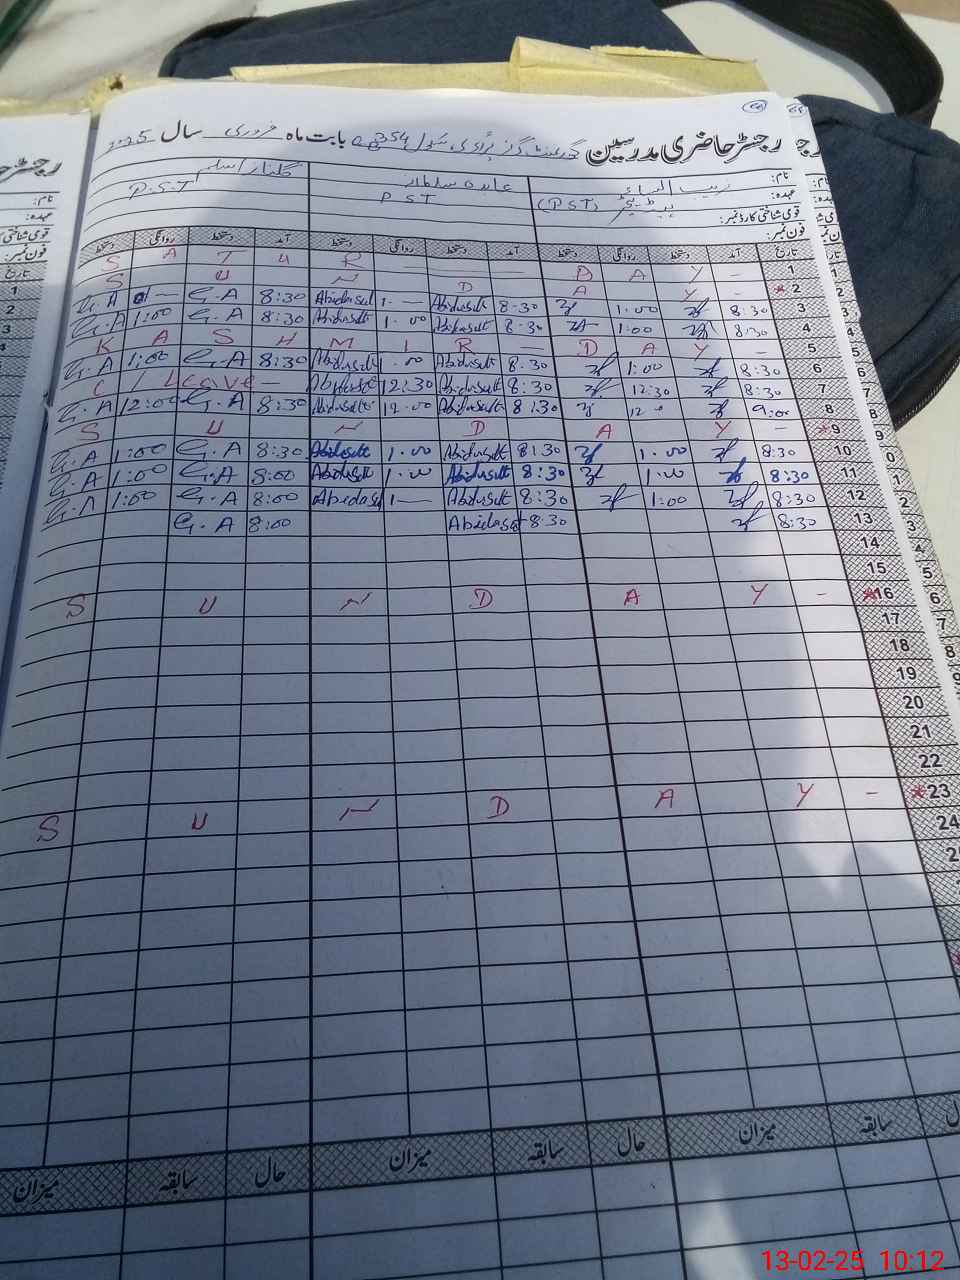 رجسٹر حاضری مدرسین گورنمنٹ گرلز پرائمری سکول 354 بابت ماہ فروری سال 2025
نام: زیب النساء عابدہ سلطانہ گلنار اسلم
عہدہ: (PST) PST P.S.T
قومی شناختی کارڈ نمبر:
فون نمبر:
تاریخ آمد دستخط روانگی دستخط آمد دستخط روانگی دستخط آمد دستخط روانگی دستخط
S A T U R — — — D A Y - 1
S U N D A Y - * 2
G.A G.A 8:30 Abidasult 1.— Abidasult 8.30 1.00 8:30 3
G.A 1:00 G.A 8:30 Abidasult 1.00 Abidasult 8.30 1:00 8:30 4
K A S H M I R — D A Y - 5
G.A 1:00 G.A 8:30 Abidasult 1.00 Abidasult 8.30 1:00 8:30 6
C/Leave — Abidasult 12:30 Abidasult 8:30 12:30 8:30 7
G.A 12:00 G.A 8:30 Abidasult 12.00 Abidasult 8:30 12 9:00 8
S U N D A Y - * 9
G.A 1:00 G.A 8:30 Abidasult 1.00 Abidasult 8:30 1.00 8:30 10
G.A 1:00 G.A 8:00 Abidasult 1.00 Abidasult 8:30 1:00 8:30 11
G.A 1:00 G.A 8:00 Abidasul 1— Abidasult 8:30 1:00 8:30 12
G.A 8:00 Abidasult 8.30 8:30 13
14
15
S U N D A Y - *16
17
18
19
20
21
22
S U N D A Y - *23
24
حال سابقہ میزان حال سابقہ میزان حال سابقہ میزان
13-02-25 10:12